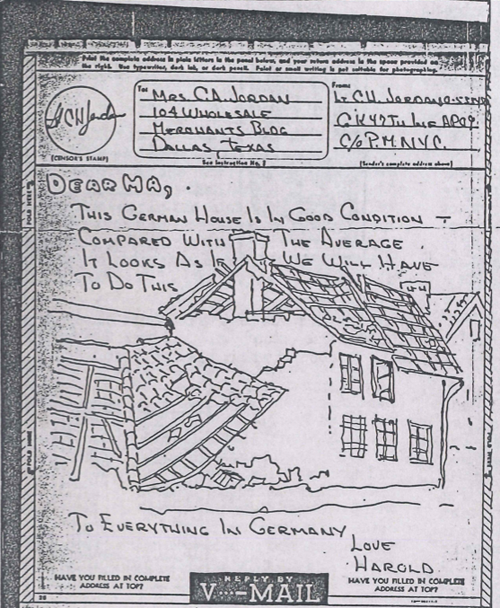 Print the complete address in plain letters in the panel below, and your return address in the space provided on
the right. Use typewriter, dark ink, or dark pencil. Paint or small writing is not suitable for photographing.
To
MRS. C.A. JORDAN
104 WHOLESALE
MERCHANTS BLDG
DALLAS, TEXAS
From
LT C.H. JORDAN
C/O P.M. N.Y.C.
(CENSOR'S STAMP)
See Instruction No. 2
(Sender's complete address above)
DEAR MA,
THIS GERMAN HOUSE IS IN GOOD CONDITION –
COMPARED WITH THE AVERAGE
IT LOOKS AS IF WE WILL HAVE
TO DO THIS
TO EVERYTHING IN GERMANY
LOVE
HAROLD
HAVE YOU FILLED IN COMPLETE
ADDRESS AT TOP?
REPLY BY
V···–MAIL
HAVE YOU FILLED IN COMPLETE
ADDRESS AT TOP?